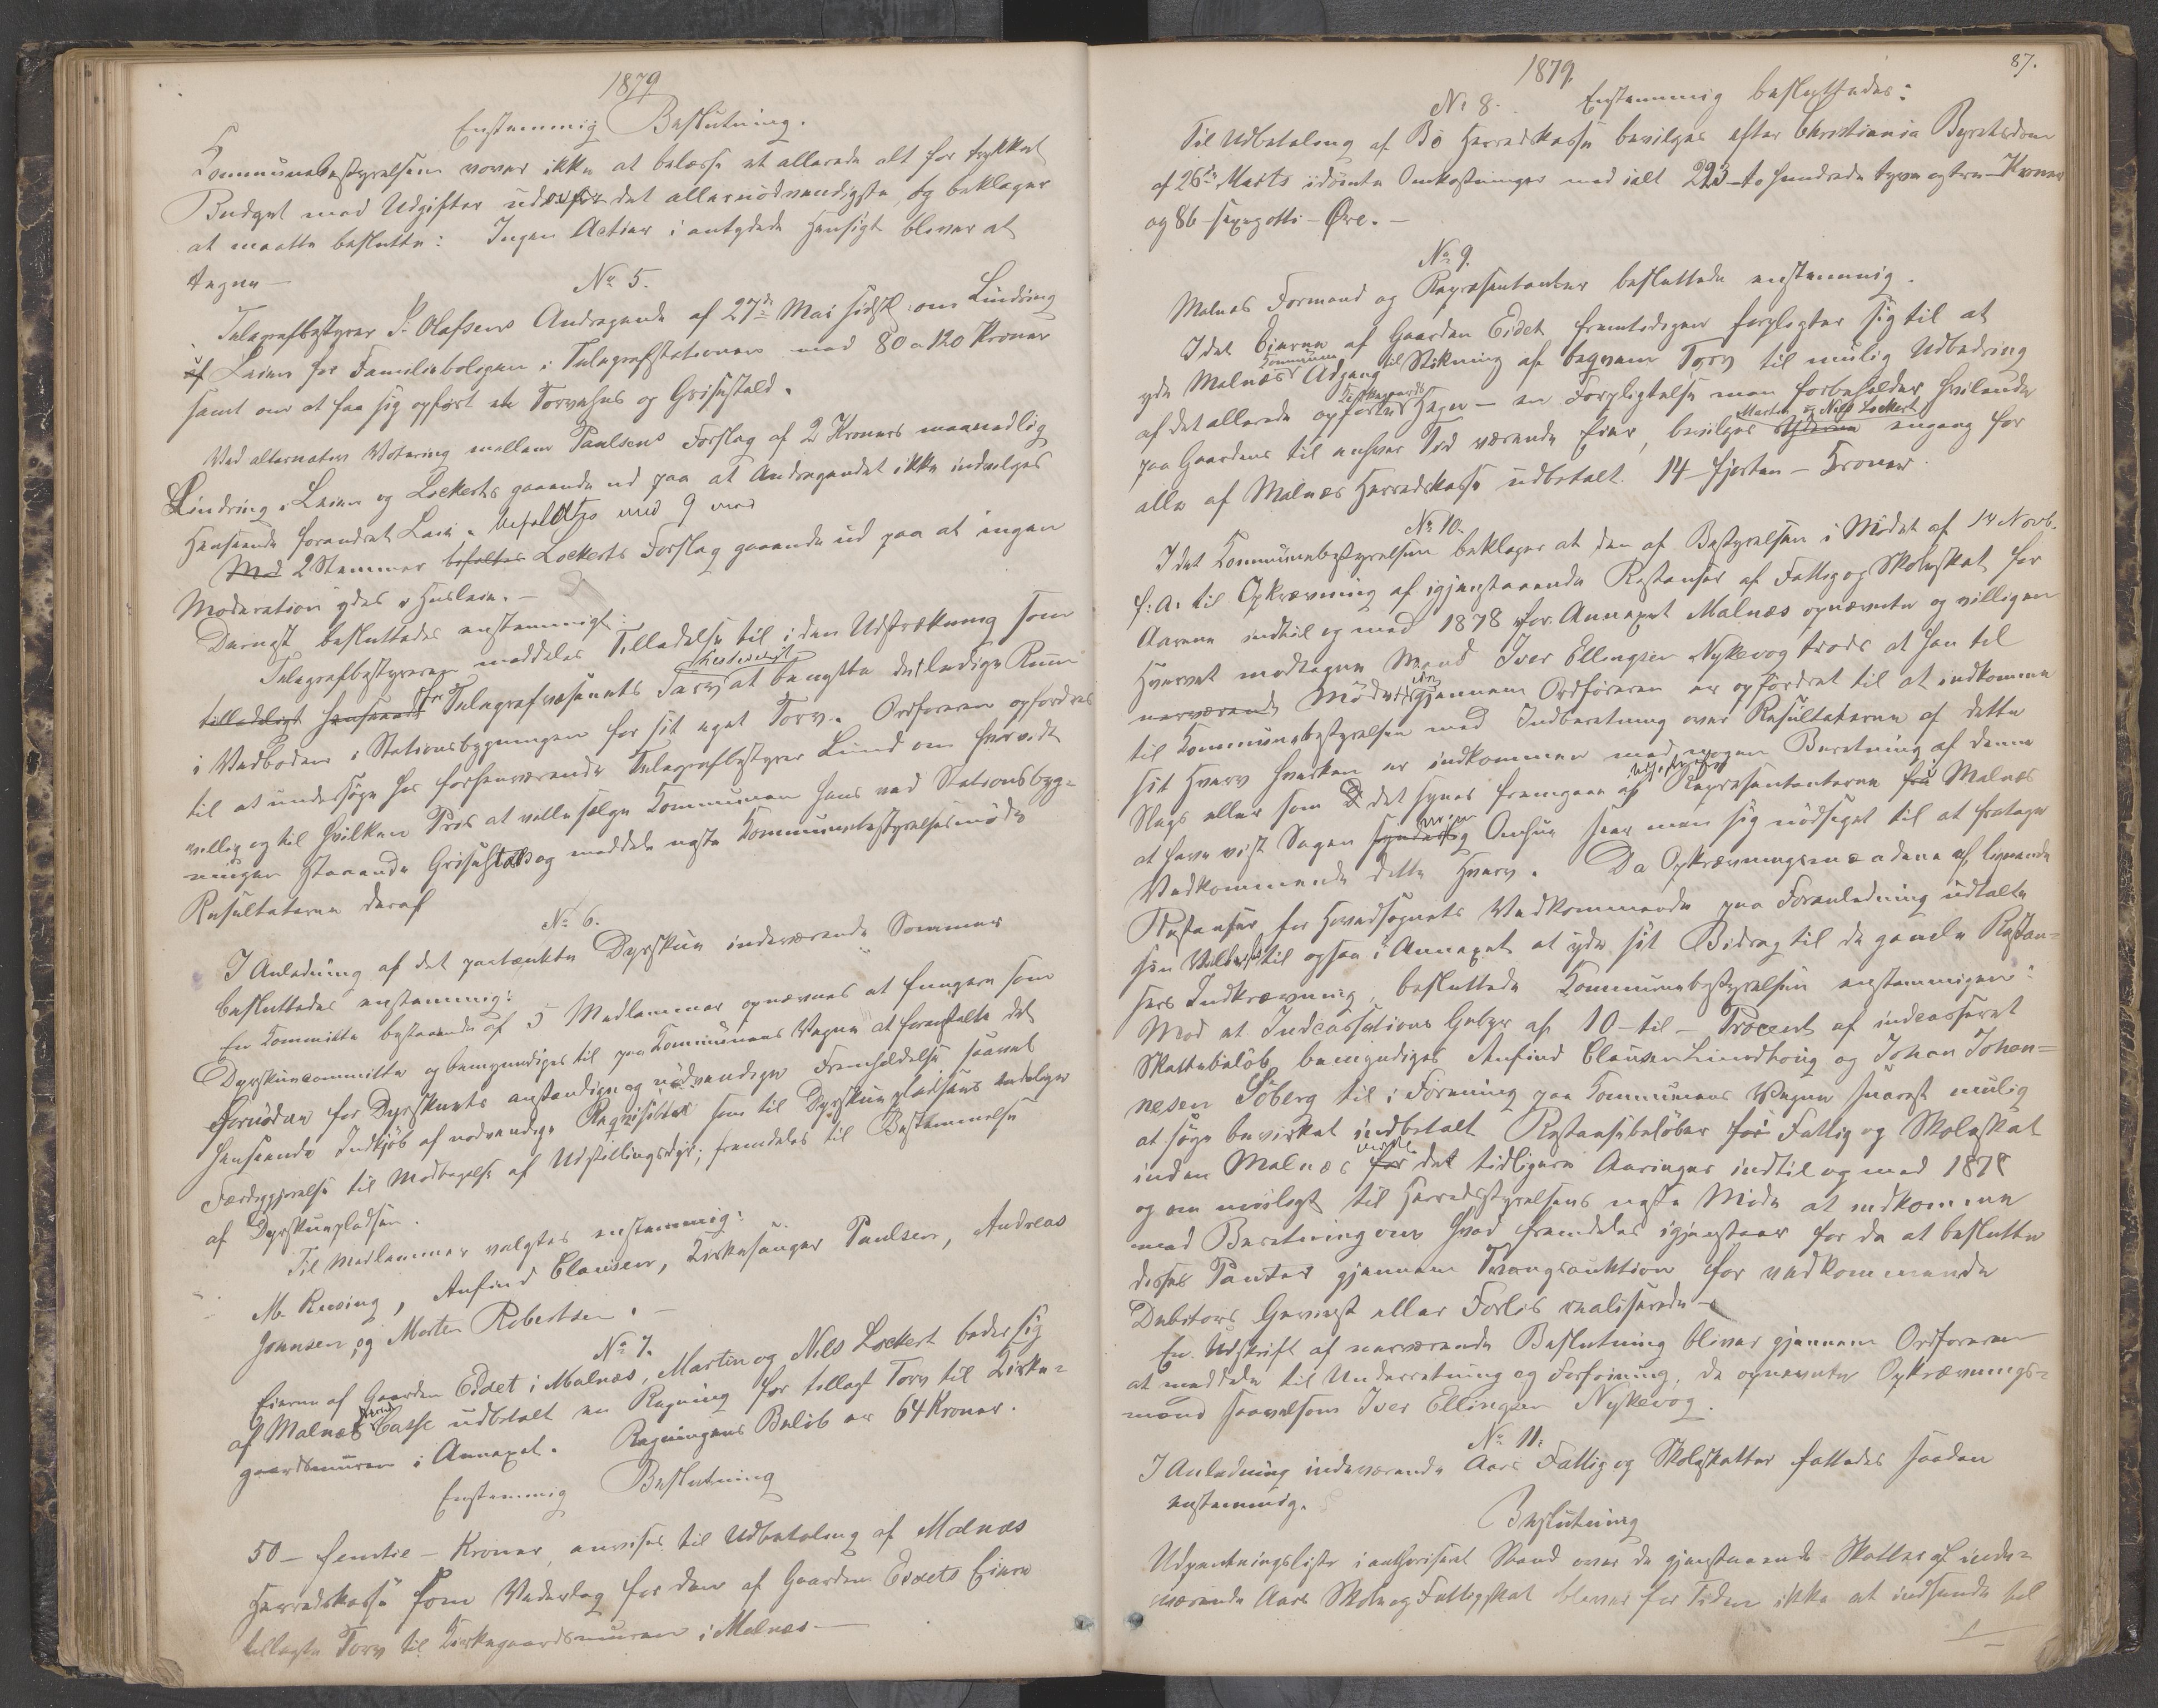 1879
Enstemmig Beslutning.
Kommunebestyrelsen vover ikke at belæsse et allerede alt for trykket
Budget med Udgifter udenfor det allernødvendigste og beklager
at maatte beslutte: Ingen Actier i antydede Hensigt bliver at
tegne —
No 5.
Telegrafbestyrer P. Olafsens Andragende af 27de Mai sidstl. om Lindring
af Leien for Familieboligen i Telegrafstationen med 80 a 120 Kroner
samt om at faa sig opført et Torvehus og Grisestald.
Ved alternativ Votering mellem Paulsens Forslag af 2 Kroners maanedlig
Lindring i Leien og Lockerts gaaende ud paa at Andragendet ikke indvilges
Henseende forandret Leie. befattes med 9 mod
Med 2 Stemmer befattes Lockerts Forslag gaaende ud paa at ingen
Moderation ydes i Husleie. —
Dernæst besluttedes enstemmigt:
Telegrafbestyreren meddeles Tilladelse til i den Udstrækning som
tilladeligt Henseende for Telegrafvæsenets Tarv at benytte det ledige Rum
i Vedboden i Stationsbygningen for sit eget Torv. Ordføreren opfordres
til at undersøge hos forhenværende Telegrafbestyrer Lund om hvorvidt
villig og til hvilken Pris at ville sælge Kommunen hans ved Stationsbyg-
ningen staaende Grisestald og meddele næste Kommunebestyrelsesmøde
Resultaterne deraf
No 6.
I Anledning af det paatænkte Dyrskue indeværende Sommer
besluttedes enstemmig:
En Committe bestaaende af 5 Medlemmer opnævnes at fungere som
Dyrskuecommitte og bemyndiges til paa Kommunens Vegne at foranstalte det
fornødne for Dyrskuets anstændige og nødvendige Fremholdelse saavel
Henseende Indkjøb af nødvendige Reqvisiter som til Dyrskuepladsens
Færdiggjørelse til Modtagelse af Udstillingsdyr; fremdeles til Bestemmelse
af Dyrskuepladsen.
Til Medlemmer valgtes enstemmig:
M. Rusving, Anfind Clausen, Kirkesanger Paulsen, Andreas
Johnsen og Morten Robertsen. —
No 7.
Eierne af Gaarden Eidet i Malnæs, Martin og Nils Lockert beder sig
af Malnæs Herred Casse udbetalt en Regning for tillagt Torv til Kirke-
gaardsmuren i Annexet. Regningens Beløb er 64 Kroner.
Enstemmig Beslutning
50 — femtie — Kroner, anvises til Udbetaling af Malnæs
Herredskasse som Vederlag for den af Gaarden Eidets Eiere
tillagte Torv til Kirkegaardsmuren i Malnæs —
87.
1879.
No 8. Enstemmig besluttedes:
Til Udbetaling af Bø Herredskasse bevilges efter Christiania Byretsdom
af 26de Marts idømte Omkostninger med ialt 223 — to hundrede tyve og tre — Kroner
og 86 — sexogotti — Øre. —
No 9.
Malnæs Formænd og Repræsentanter besluttede enstemmig.
Idet Eierne af Gaarden Eidet fremtidigen forpligter sig til at
yde Malnæs Kommune Adgang til Stikning af beqvem Torv til mulig Udbedring
af det allerede opførte Kirkegaards Hegn — en Forpligtelse man forbeholder hvilende
paa Gaardens til enhver Tid værende Eier, bevilges Martin og Nils Lockert engang for
alle af Malnæs Herredskasse udbetalt. 14 — fjorten — Kroner.
No 10.
Idet Kommunebestyrelsen beklager at den af Bestyrelsen i Mødet af 14 Novb.
f. A. til Opkrævning af igjenstaaende Restanser af Fattig og Skoleskat for
Aarene indtil og med 1878 for Annexet Malnæs opnævnte og villigen
Hvervet modtagne Mand Iver Ellingsen Nykevog trods at han til
nærværende Møde igjennem Ordføreren er opfordret til at indkomme
til Kommunebestyrelsen med Indberetning over Resultaterne af dette
sit Hverv hverken er indkommen med nogen Beretning af denne
Slags eller som det synes fremgaa af Repræsentanterne fra Malnæs
at have vist Sagen Omhu seer man sig nødsaget til at fratage
Vedkommende dette Hverv. Da Opkrævningsmændene af lignende
Restanser for Hovedsognets Vedkommende paa Foranledning udtalte
sin Villighed til ogsaa i Annexet at yde sit Bidrag til de gamle Restan-
sers Indkrævning, besluttede Kommunebestyrelsen enstemmigen:
Mod et Indcassations Gebyr af 10 — til — Procent af indcasseret
Skattebeløb bemyndiges Anfind Clausen Limedhoug og Johan Johan-
nesen Søberg til i Forening paa Kommunens Vegne snarest mulig
at søge bevirket indbetalt Restansebeløber for Fattig og Skoleskat
inden Malnæs for det tidligere Aaringer indtil og med 1878
og om muligt til Herredsstyrelsens næste Møde at indkomme
med Beretning om hvad fremdeles igjenstaar for da at beslutte
disses Panter gjennem Tvangsauktion for vedkommende
Debitors Gevinst eller Forlis realiserede —
En Udskrift af nærværende Beslutning bliver gjennem Ordføreren
at meddele til Underretning og Forføining, de opnævnte Opkrævnings-
mænd saavelsom Iver Ellingsen Nykevog.
No 11.
I Anledning indeværende Aars Fattig og Skoleskatter fattedes saadan
enstemmig.
Beslutning
Udpantningsliste i autoriseret Stand over de gjenstaaende Skatter af inde-
værende Aars Skole og Fattigskat bliver for Tiden ikke at indsende til